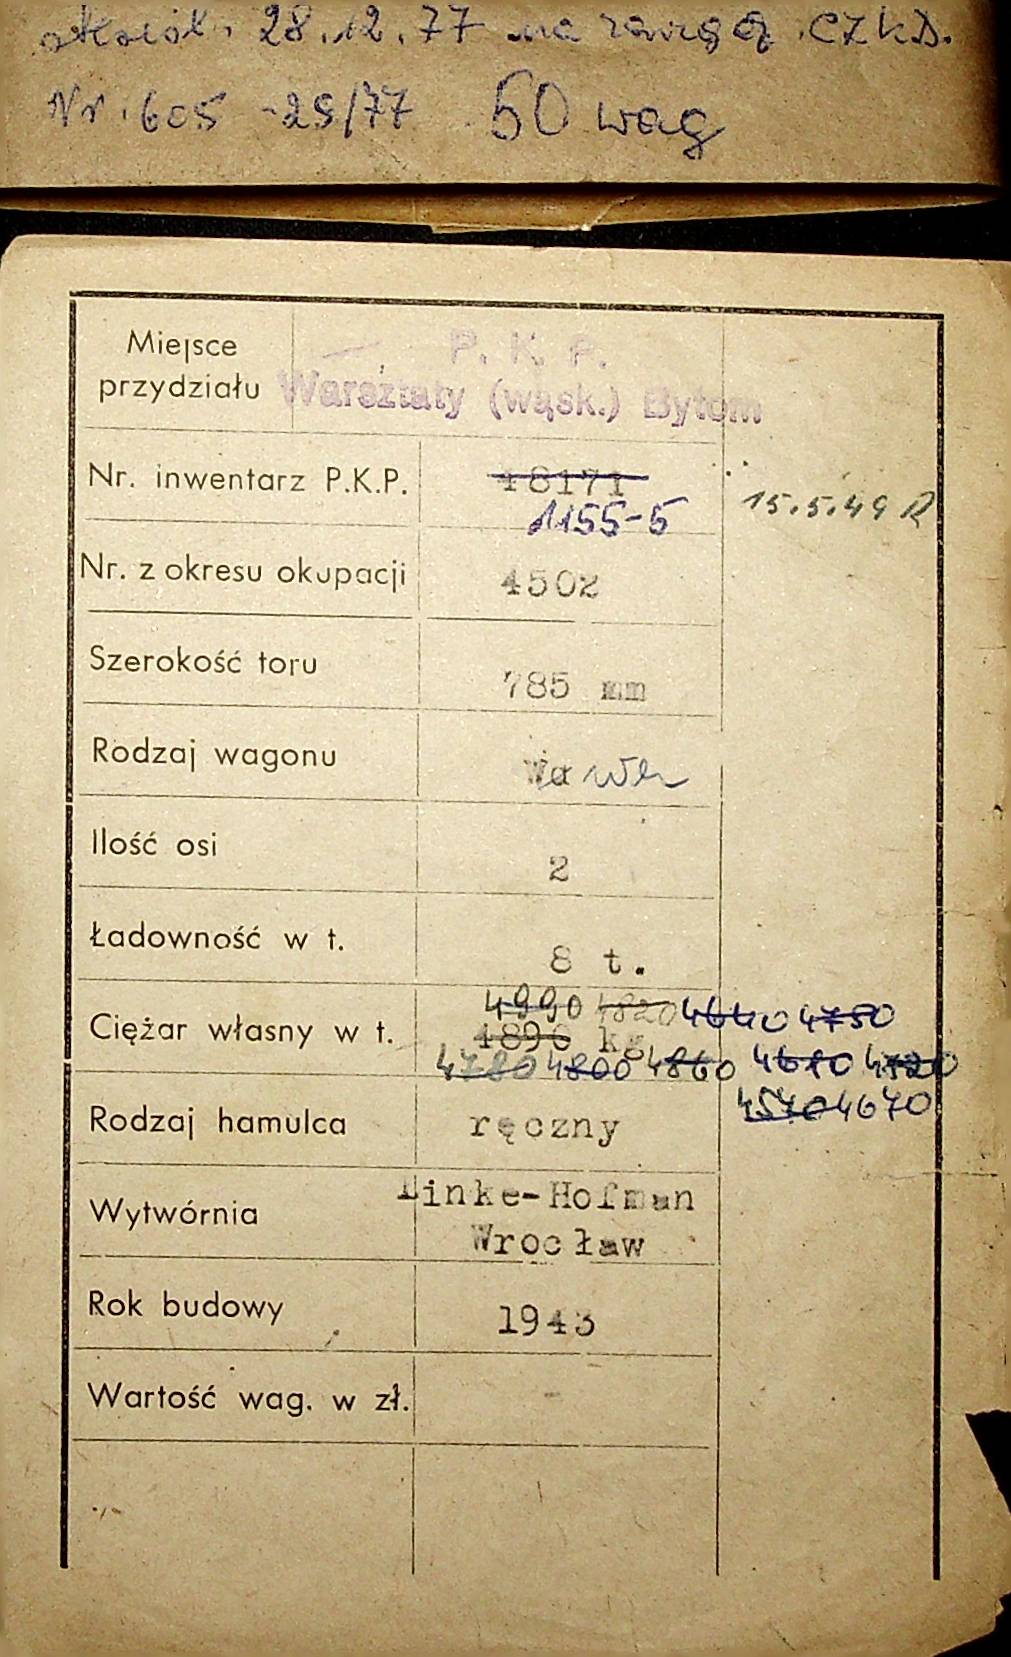 28.12.77 na
Nr. 605 -29/77 50 wag
Miejsce przydziału
P. K. P.
Warsztaty (wąsk.) Bytom
Nr. inwentarz P.K.P. 48171
1155-5 15.5.49 R
Nr. z okresu okupacji 4502
Szerokość toru 785 mm
Rodzaj wagonu
Ilość osi 2
Ładowność w t. 8 t.
4990 4820 4640 4750
Ciężar własny w t. 4890 kg
4780 4800 4860 4680 4720
4570 4670
Rodzaj hamulca ręczny
Wytwórnia Linke-Hofman
Wrocław
Rok budowy 1943
Wartość wag. w zł. -